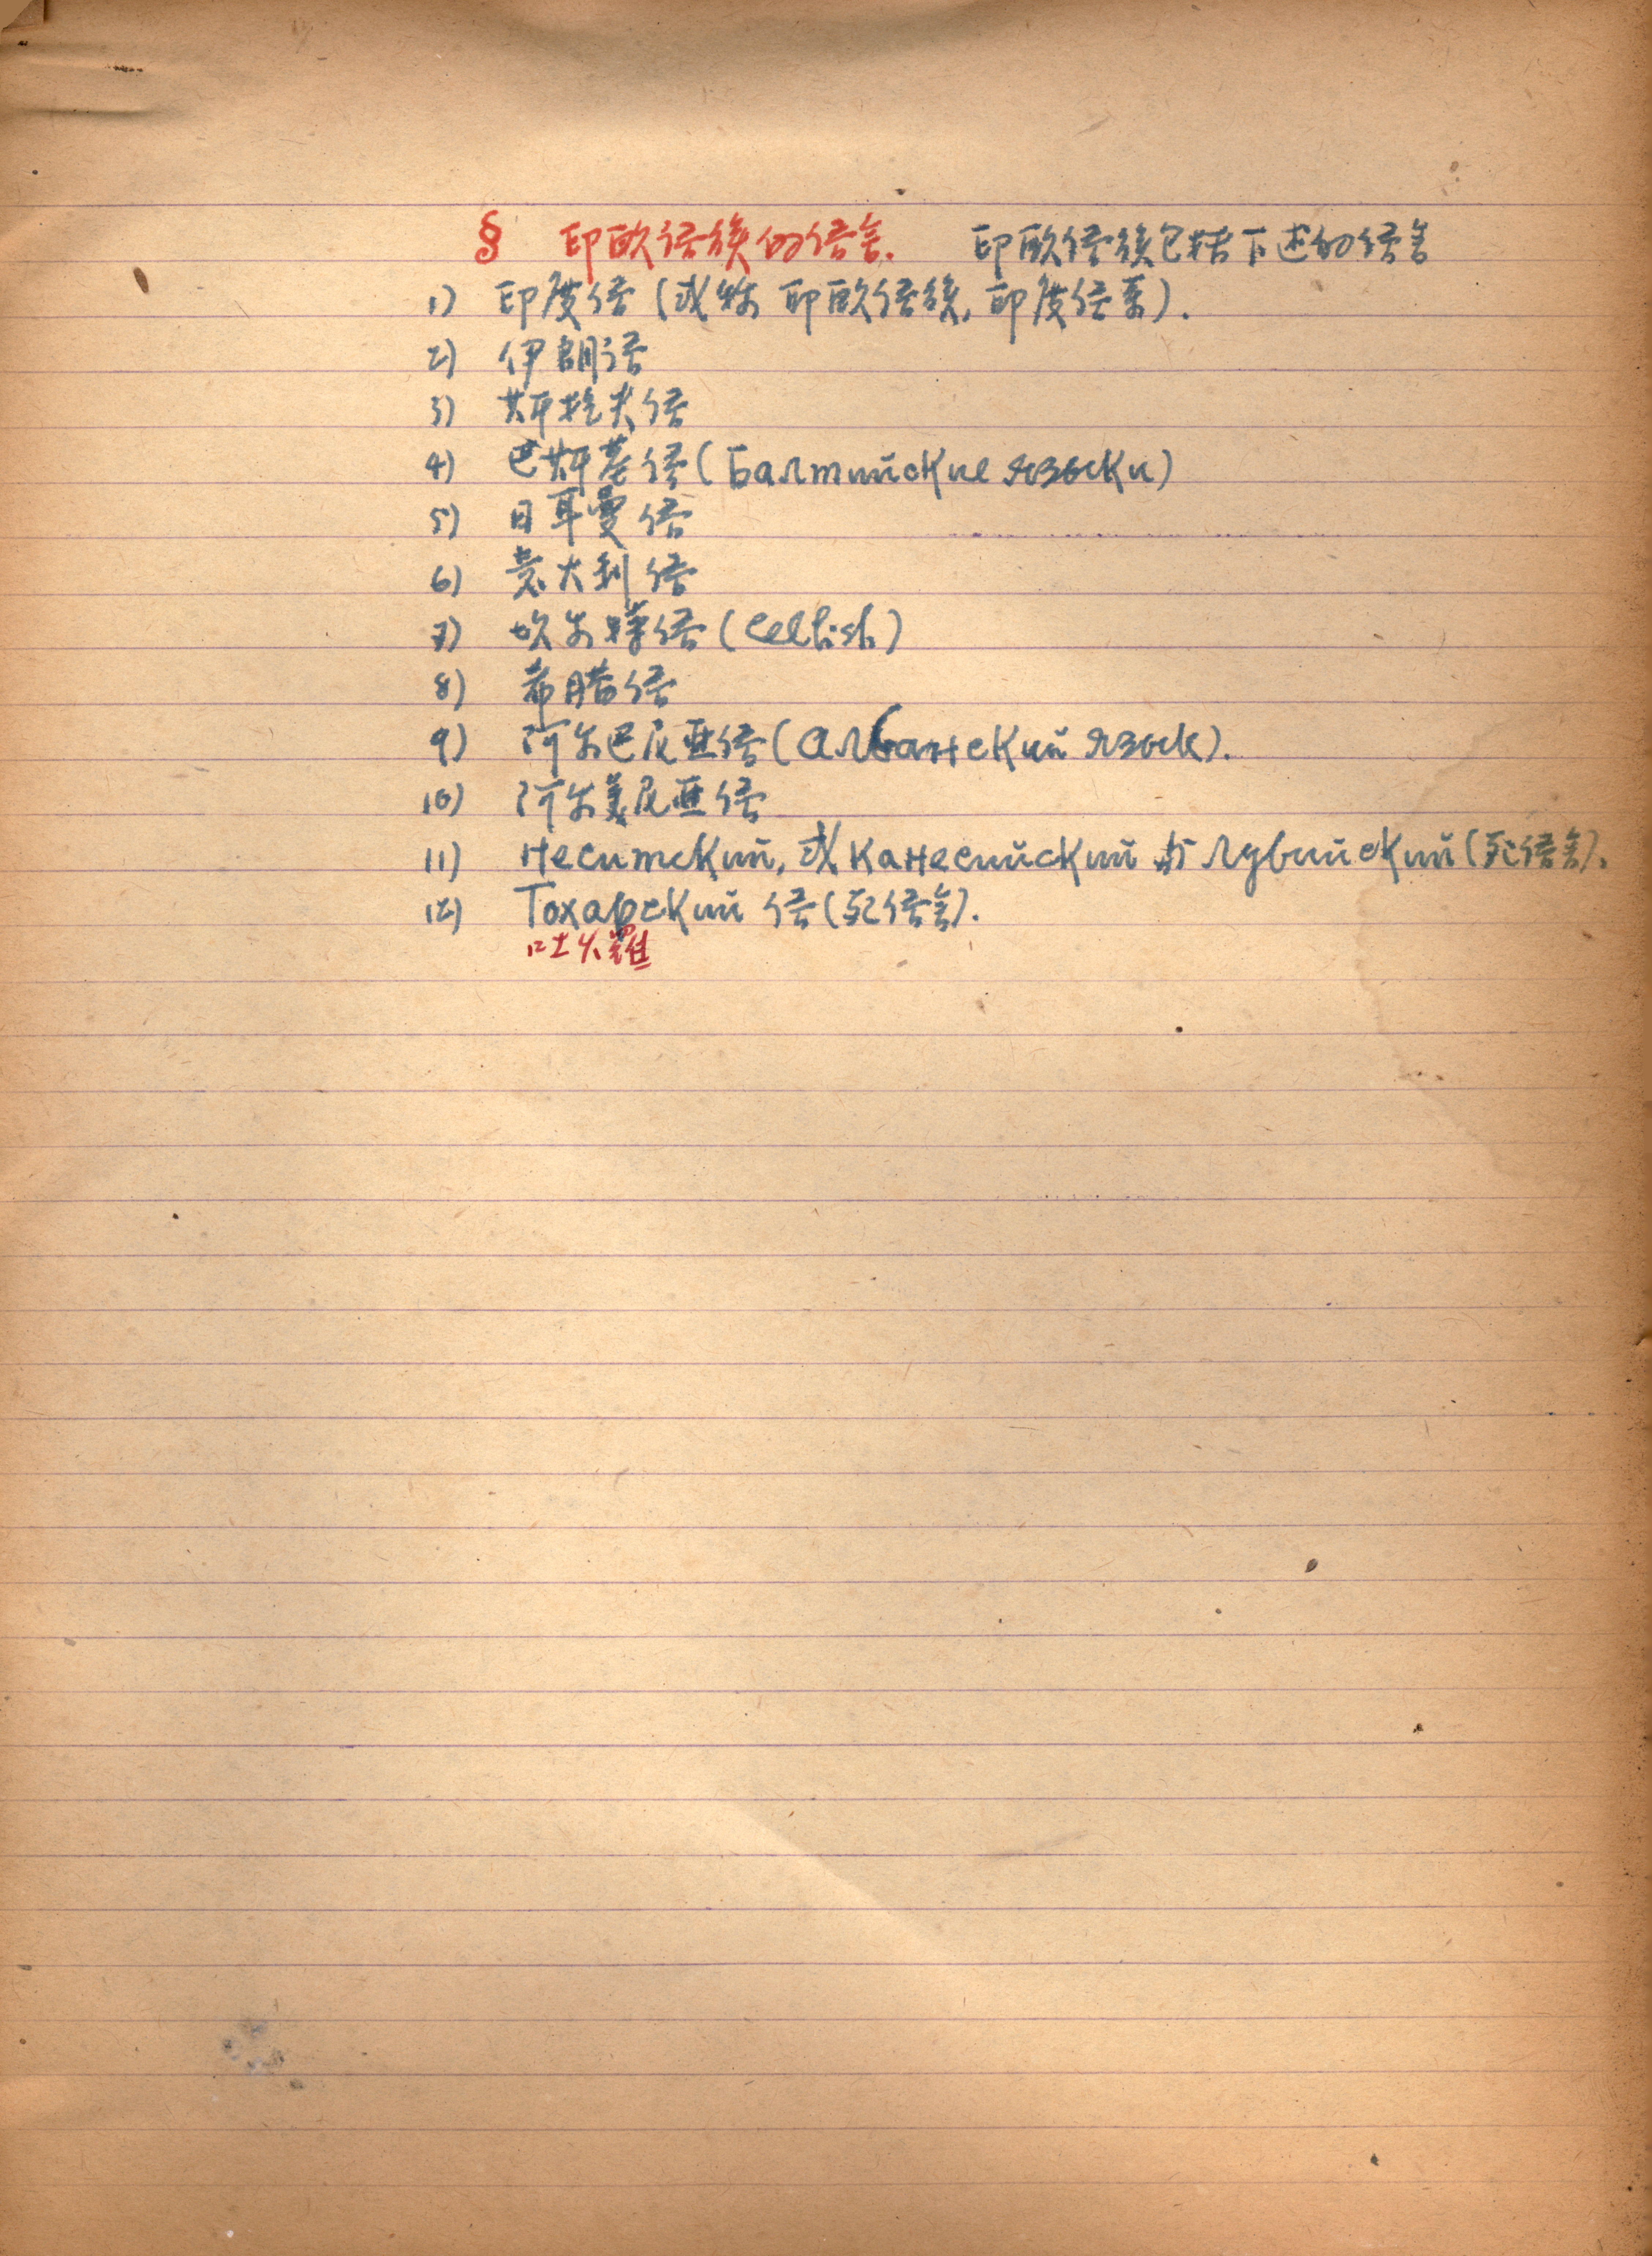 § 印欧语族的语言. 印欧语族包括下述的语言
1) 印度语 (或称 印欧语族, 印度语系).
2) 伊朗语
3) 斯拉夫语
4) 巴斯基语 (Балтийские языки)
5) 日耳曼语
6) 意大利语
7) 坎尔特语 (Celtish)
8) 希腊语
9) 阿尔巴尼亚语 (албанский язык).
10) 阿尔美尼亚语
11) Неситский, 或 Канесийский 与 Лувийский (死语言).
12) Тохарский 语 (死语言).
吐火羅